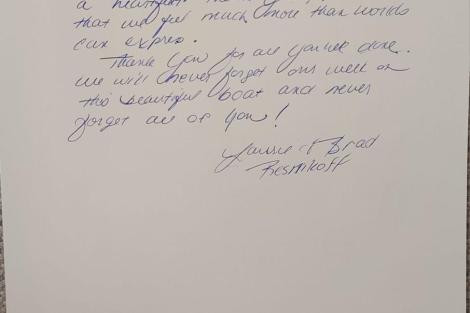 a heartfelt
that we feel much more than words
can express.
Thank You for all you've done.
We will never forget our week on
this beautiful boat and never
forget all of you!
Laurie + Brad
Resnikoff